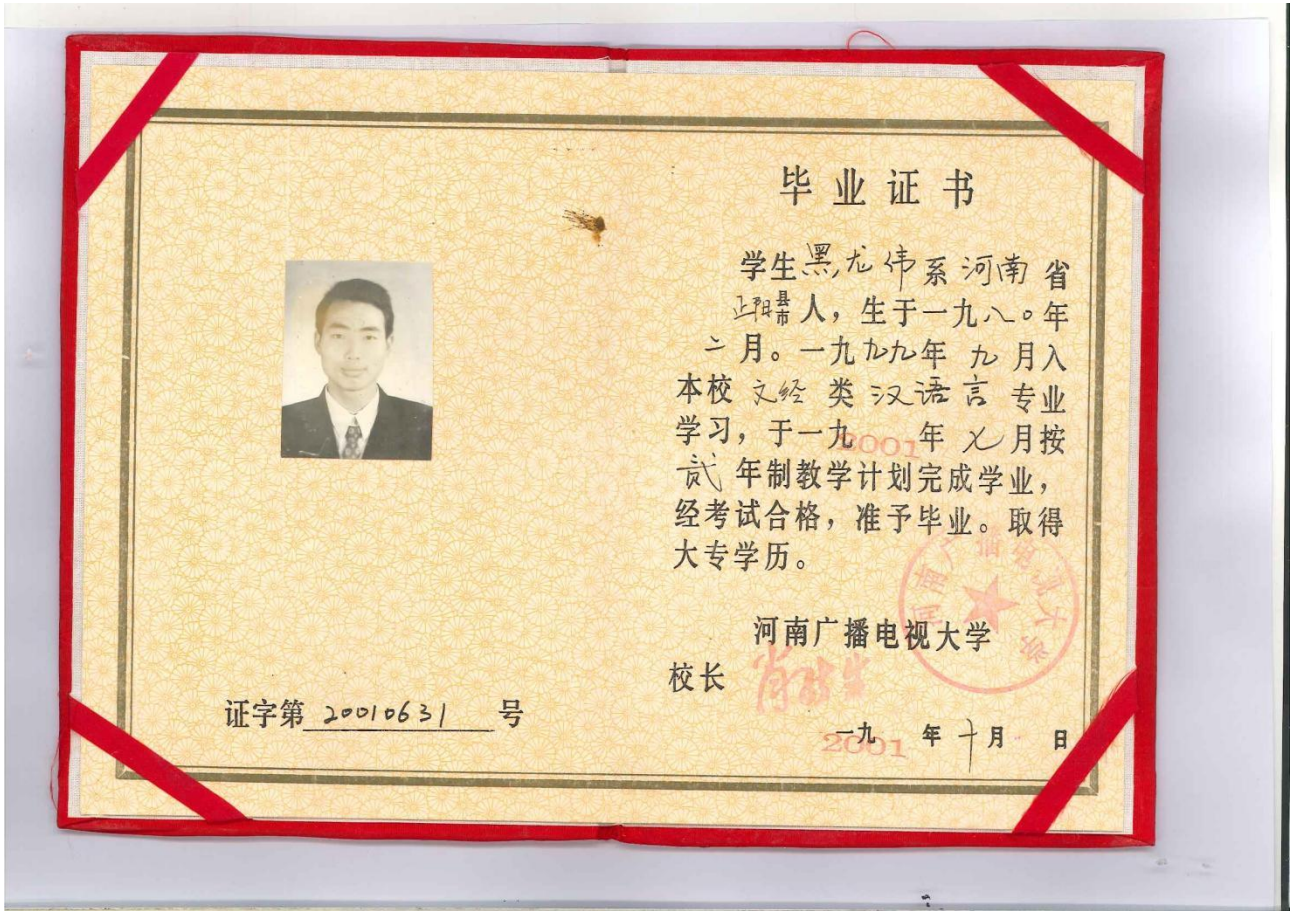 毕业证书
学生黑龙伟系河南省
正阳县市人，生于一九八〇年
二月。一九九九年九月入
本校文经类汉语言专业
学习，于一九2001年七月按
贰年制教学计划完成学业，
经考试合格，准予毕业。取得
大专学历。
河南广播电视大学
河南广播电视大学
校长
一九2001年十月 日
证字第 20010631 号